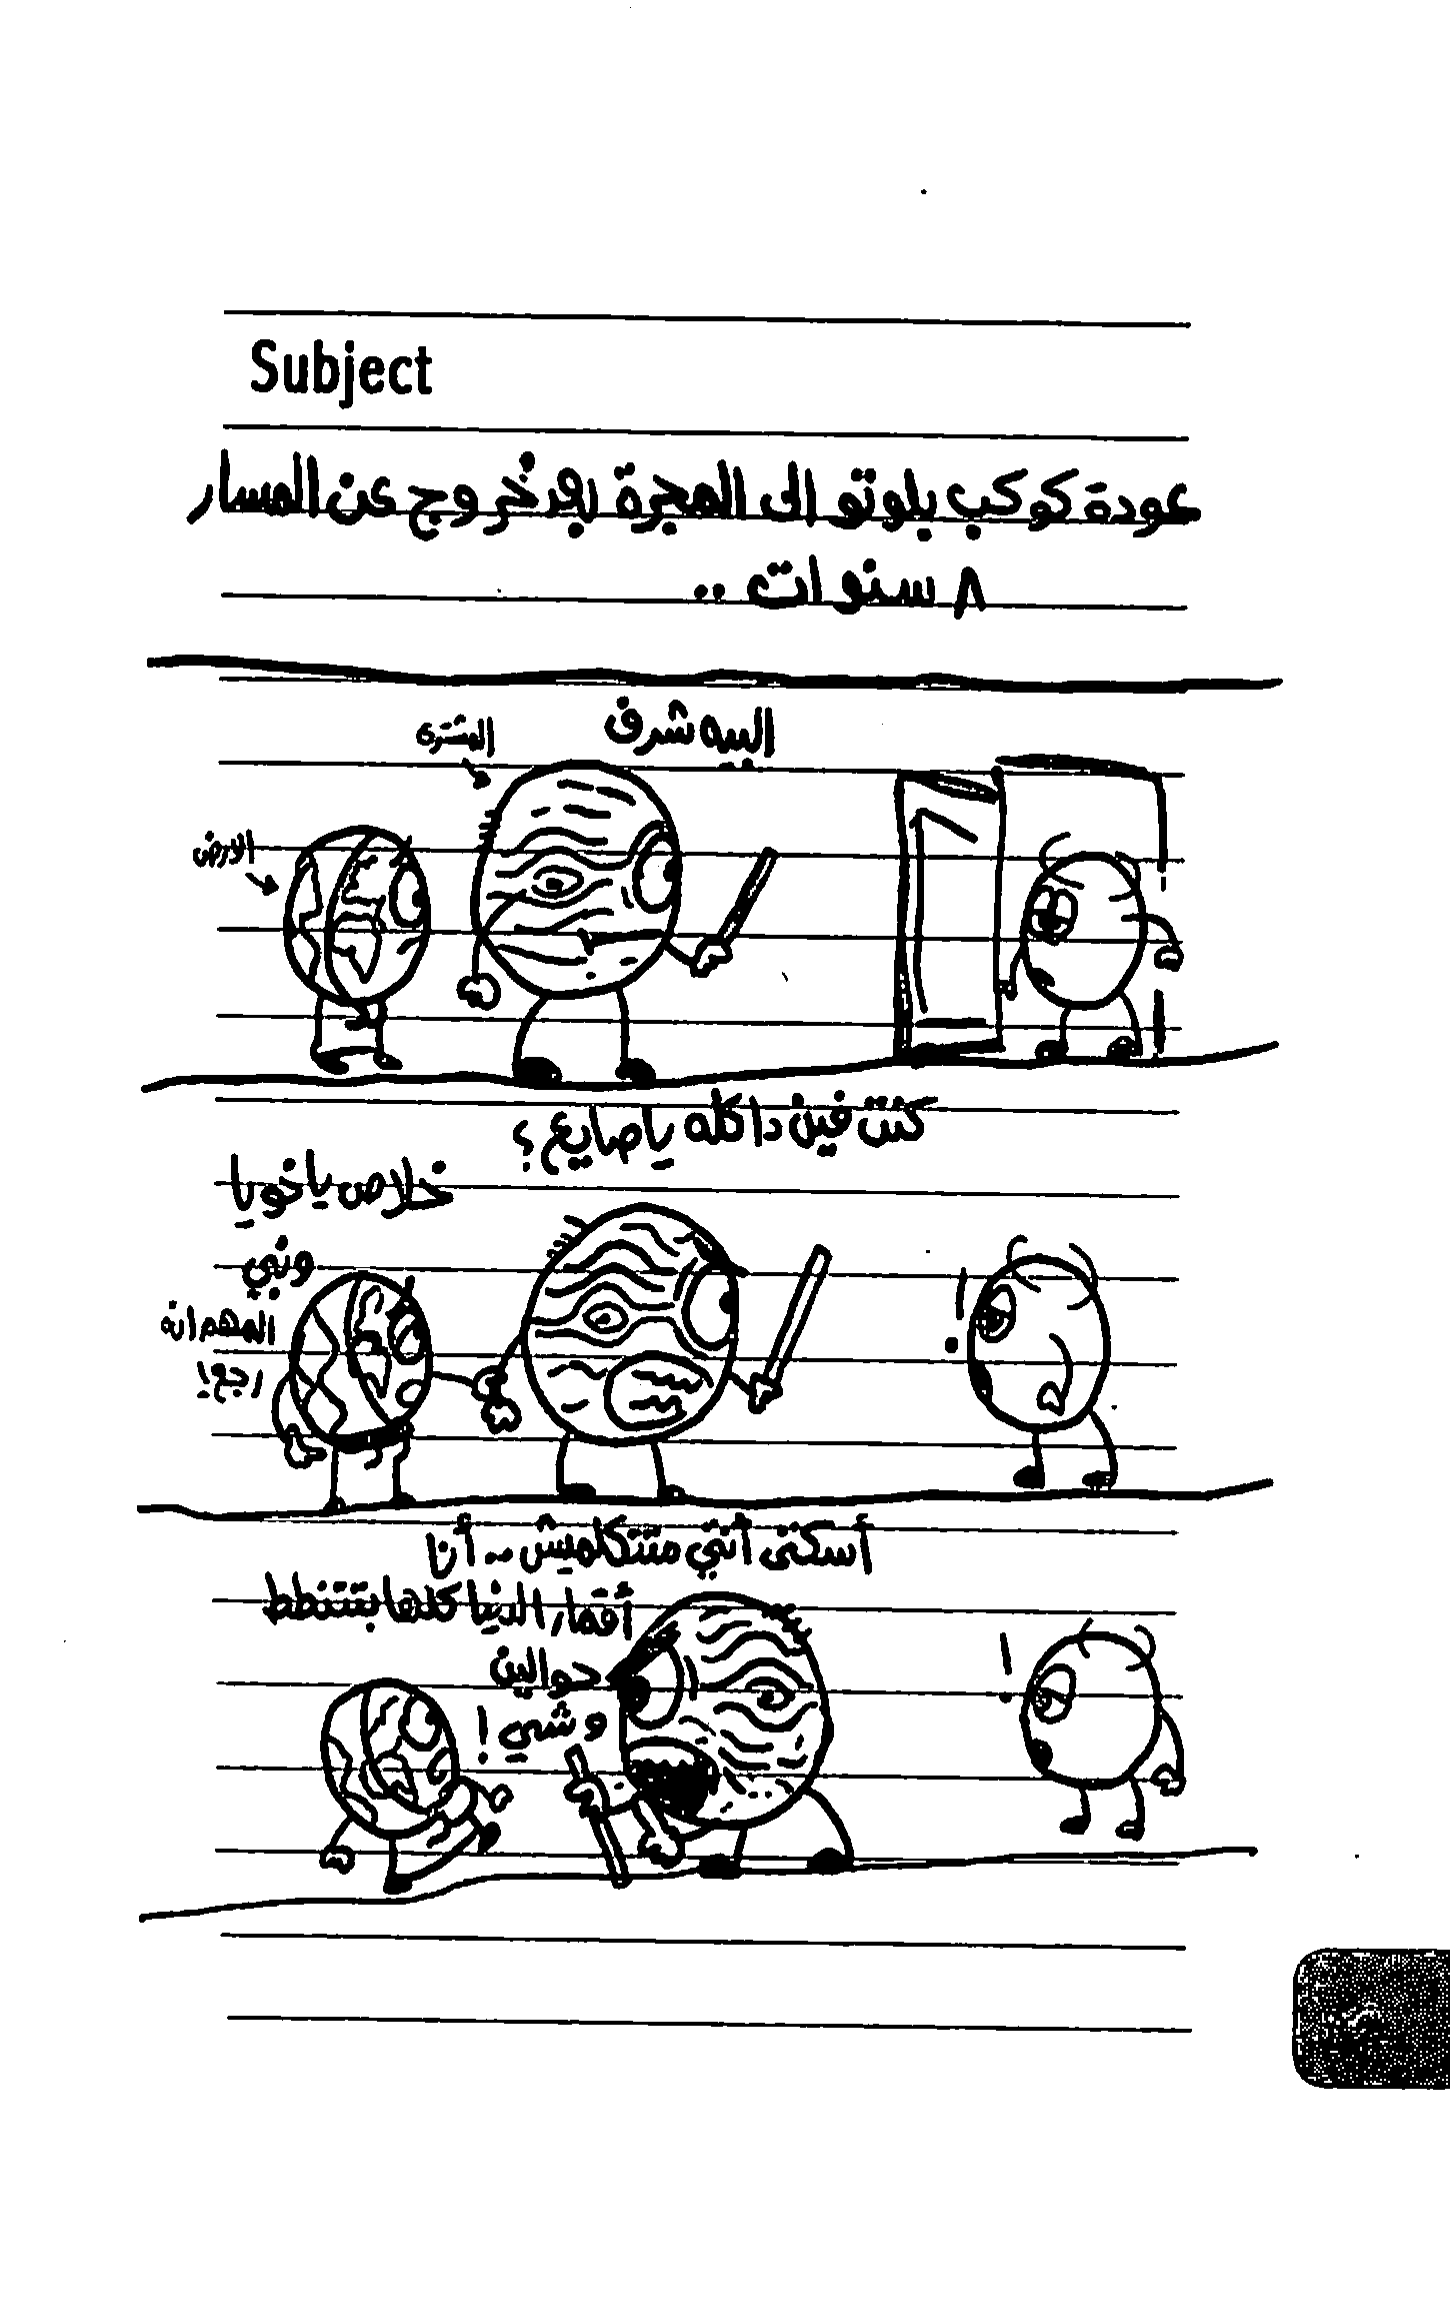 Subject
عودة كوكب بلوتو الى المجرة بعد خروج عن المسار
٨ سنوات ..
البيه شرف
المشترى
الارض
كنت فين دا كله يا صايع ؟
خلاص يا خويا
ونبي
المهم انه
رجع !
أسكتى أنتي متتكلميش .. أنا
أقمار الدنيا كلها بتتنطط
حوالين
وشي !